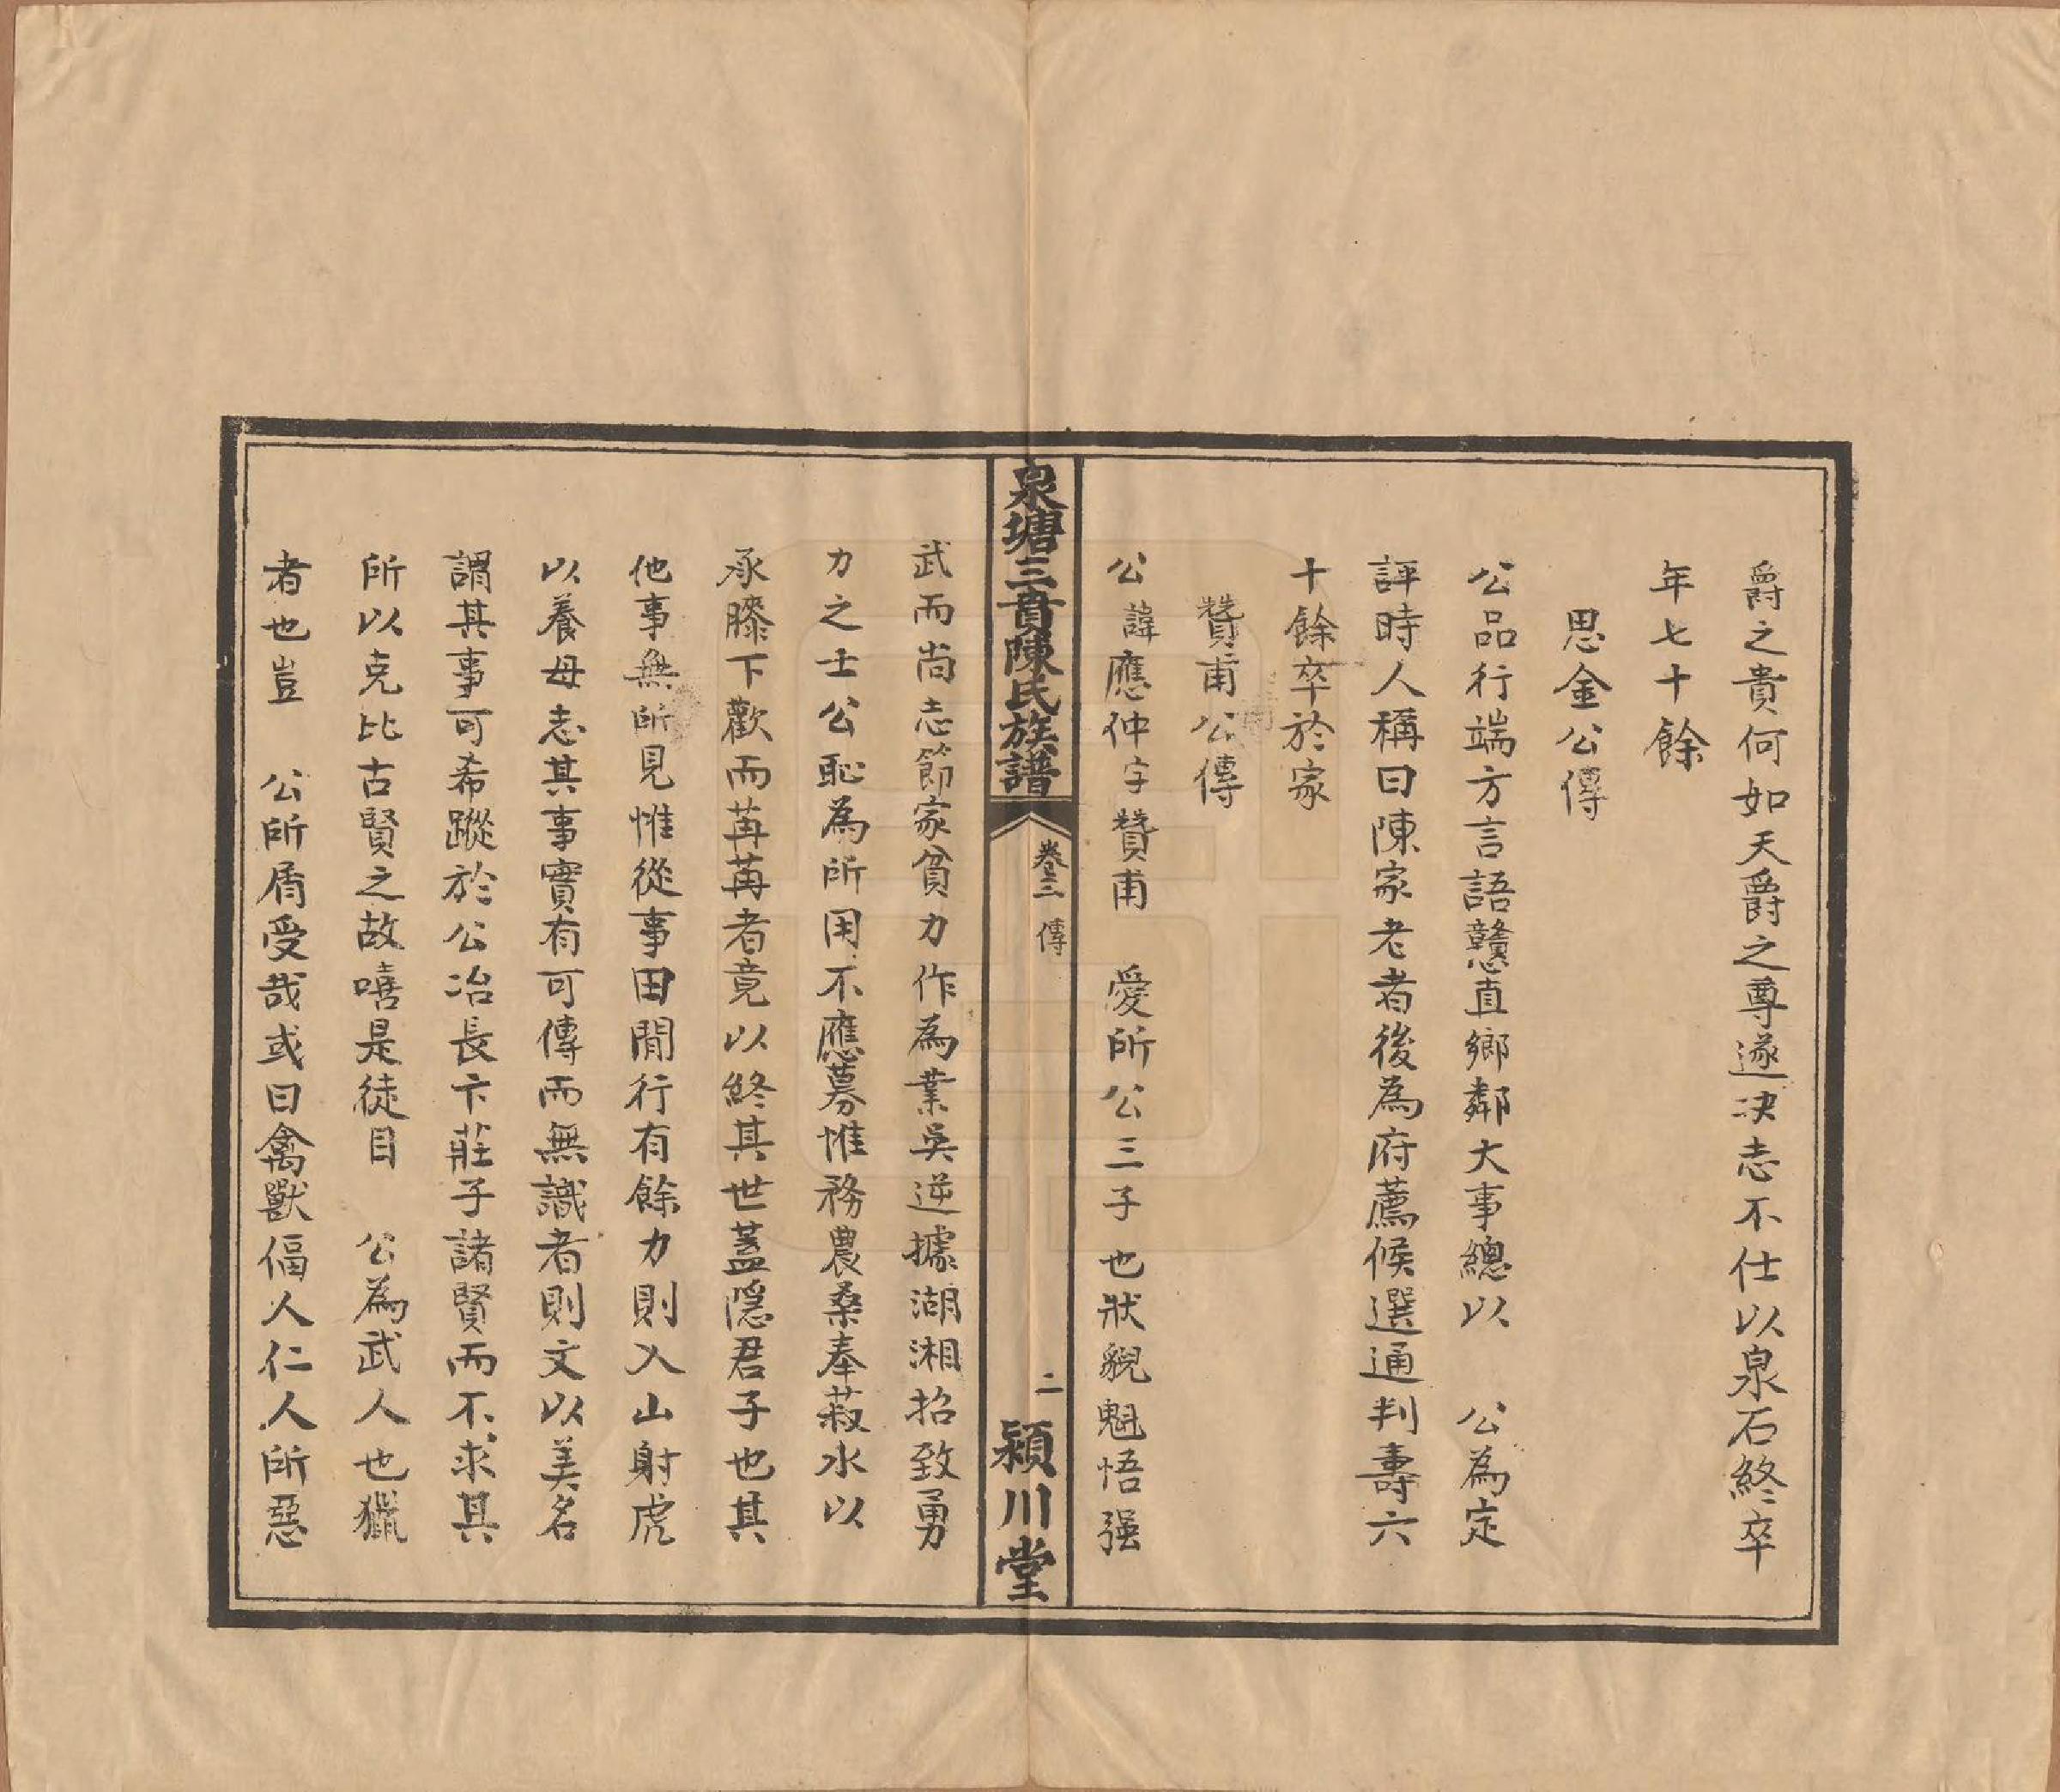 爵之貴何如天爵之尊遂决志不仕以泉石終卒
年七十餘
思金公傳
公品行端方言語戇直鄉鄰大事總以　公為定
評時人稱曰陳家老者後為府薦候選通判壽六
十餘卒於家
贊甫公傳
公諱應仲字贊甫　愛所公三子也狀貌魁悟强
泉塘三賁陳氏族譜
卷三　傳
二
潁川堂
武而尚志節家貧力作為業吳逆據湖湘招致勇
力之士公恥為所用不應募惟務農桑奉菽水以
承膝下歡而苒苒者竟以終其世蓋隱君子也其
他事無所見惟從事田間行有餘力則入山射虎
以養母志其事實有可傳而無識者則文以美名
謂其事可希蹤於公冶長卞莊子諸賢而不求其
所以克比古賢之故嘻是徒目　公為武人也獵
者也豈　公所屑受哉或曰禽獸偪人仁人所惡